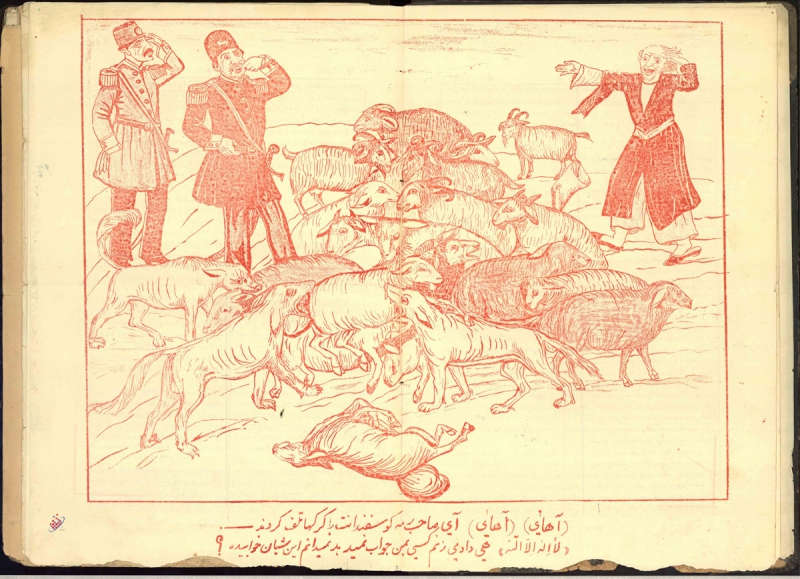 (آهای) (آهای) آی صاحب مه گوسفندانت را گرگها تلف کردند —
«لا إله إلا الله» هی داد می زنم کسی بمن جواب نمیدهد نمیدانم این شبان خوابیده ؟